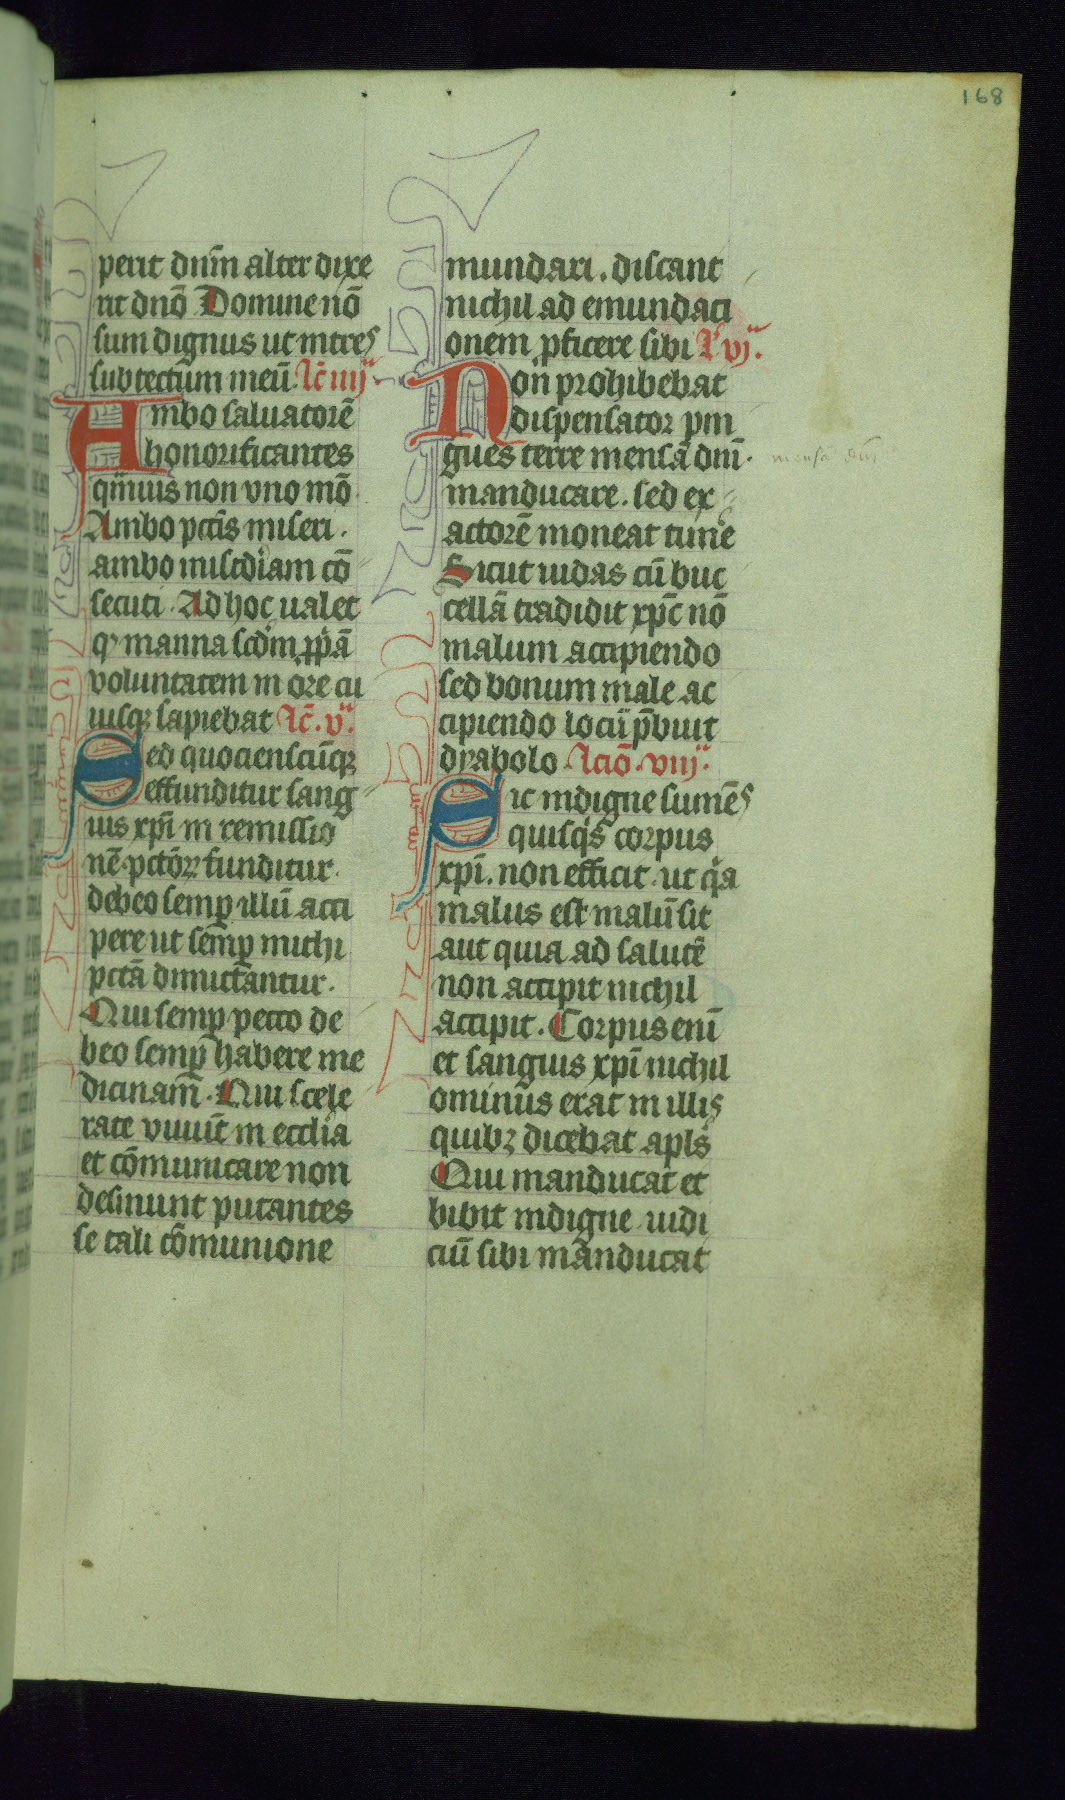 168
perit dnm̄ alter dixe
rit dnō Domine nō
sum dignus ut intres
sub tectum meū Lc̄ iiij
Ambo saluatorē
honorificantes
quis non vno mō
Ambo pctīs miseri .
ambo miscdiam cō
secuti . Ad hoc ualet
manna scdm
voluntatem in ore cu
iusqꝫ sapiebat Lc̄ . v
Sed quocienscūqꝫ
effunditur sang
uis xpī in remissio
nē pctōꝝ funditur .
debeo semp illū acci
pere ut semp michi
pctā dimictantur .
Qui semp pecco de
beo semp habere me
dicinam̄ . Qui scele
rate viuūt in ecclia
et cōmunicare non
desinunt putantes
se tali cōmunione
mundari . discant
nichil ad emundaci
onem ꝓficere sibi vj .
Non prohibebat
dispensator pin
gues terre mensā dnī . mensā dnī
manducare . sed ex
actorē moneat timē
Sicut iudas cū buc
cellā tradidit xpc̄ nō
malum accipiendo
sed bonum male ac
cipiendo locū p̄buit
dyabolo . Lciō . viij .
Sic indigne sumēs
quisqs corpus
xpī . non efficit . ut qa
malus est malū sit
aut quia ad salutē
non accipit nichil
accipit . Corpus enī
et sanguis xpī nichil
ominus erat in illis
quibꝫ dicebat apls
Qui manducat et
bibit indigne iudi
ciū sibi manducat